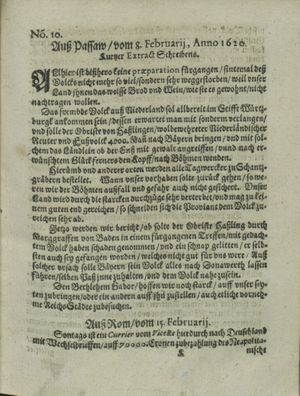 No. 10.
Auß Passaw/ vom 8. Februarij, Anno 1620.
Kurtzer Extract Schreibens.
Alhier ist bißhero keine præparation fürgangen/ sintemal deß
Volcks nicht mehr so viel/ sondern sehr weggestorben/ weil unser
Land ihnen das weisse Brod und Wein/ wie sie es gewohnt/ nicht
nachtragen wollen.
Das frembde Volck auß Niderland sol allbereit im Stifft Würtz-
burg ankommen sein/ dessen erwartet man mit sondern verlangen/
und solle der Obriste von Haßlingen/ wolbewehrter Niderländischer
Reuter und Fußvolck 4000. Nach Bäyern bringen/ und mit sol-
chen das Ländlein ob der Enß mit gewalt angreiffen/ unnd nach er-
wünschtem Glück ferners den Kopff/ nach Böhmen wenden.
Hierumb und anderer orten werden alle Tag werck: zu Schantz-
gräbern bestellet. Wann unser vorhaben solte zuruck gehen/ so we-
ren wir der Böhmen außfall und gefahr auch nicht gesichert. Unser
Land wird durch die starcken durchzüge sehr verderbt/ und mag zu kei-
nem guten end gereichen/ so schneiden sich die Proviant dem Volck zu-
reichen sehr ab.
Jetzo werden wir bericht/ ob solte der Obriste Haßling durch
Marggraffen von Baden in einem fürgangenen Treffen/ mit gedach-
tem Volck schaden haben genommen/ und ein schnap gelitten/ er selb-
sten auch sey gefangen worden/ welches nicht gut für uns were. Auß
solcher ursach solle Bäyern sein Volck alles nach Donawerth lassen
führen/ selbigen Paß inne zuhalten/ und dem Volck nachzuziehn.
Den Bethlehem Gabor/ hoffen wir noch starck/ auff unser sey-
ten zubringen/ oder ein andern auff ihn zustifften/ auch etliche vorneh-
me Reichs Städte zubesuchen.
Auß Rom/ vom 15. Februarij.
Sontags ist ein Currier vom ViceRe hierdurch nach Deutschland
mit Wechselbrieffen/ auff 70000. Cronen zubezahlung des Neapolita-
nische